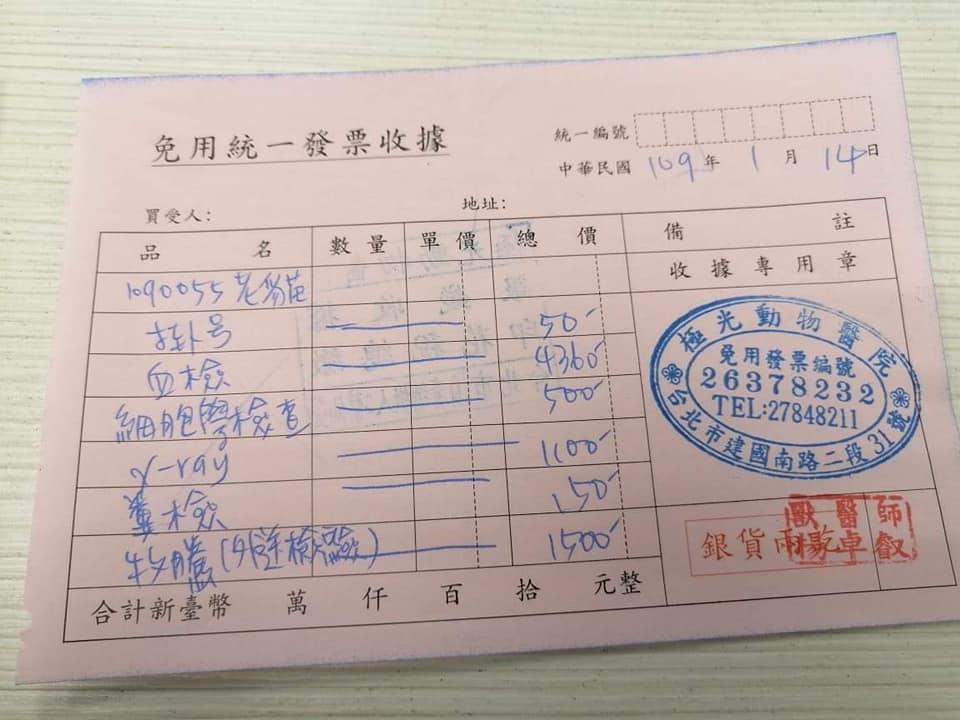 免用統一發票收據
統一編號
中華民國 109 年 1 月 14 日
買受人: 地址:
品名 數量 單價 總價 備註
收據專用章
1090055 老貓苗
掛号 50-
血檢 4360-
細胞學檢查 500-
x-ray 1100-
糞檢 150-
(外送檢驗) 1500-
合計新臺幣 萬 仟 百 拾 元整
極光動物醫院
免用發票編號
26378232
TEL:27848211
台北市建國南路二段31號
銀貨兩訖
獸醫師
楊卓叡